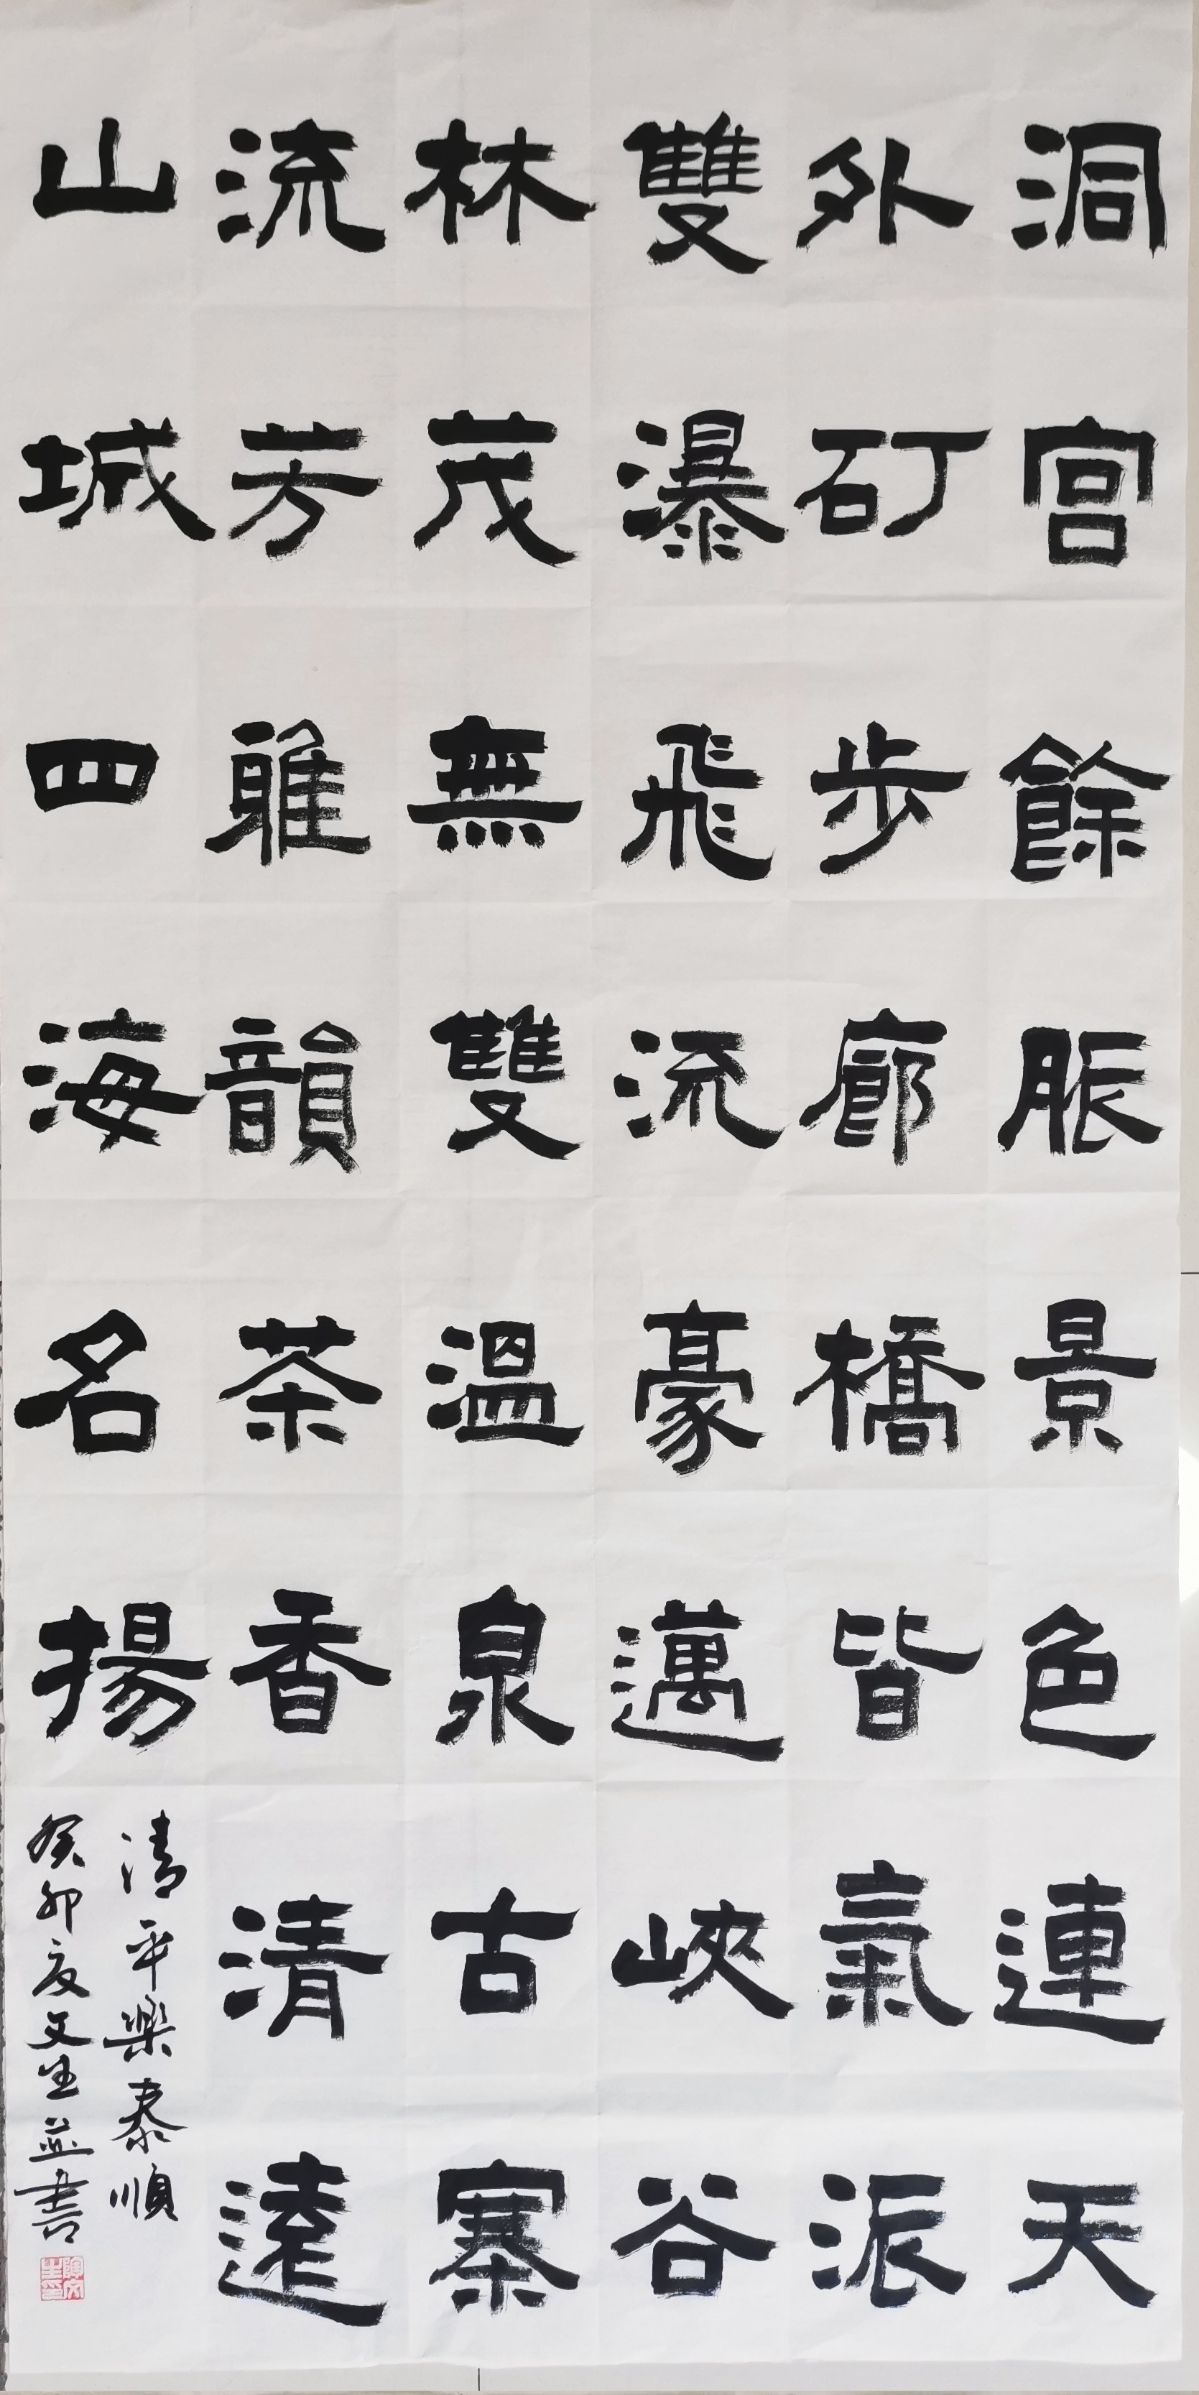 洞宫餘脈景色連天
外矴步廊橋皆氣派
雙瀑飛流豪邁峽谷
林茂無雙溫泉古寨
流芳雅韻茶香清遠
山城四海名揚
清平樂泰順
癸卯夏文生並書